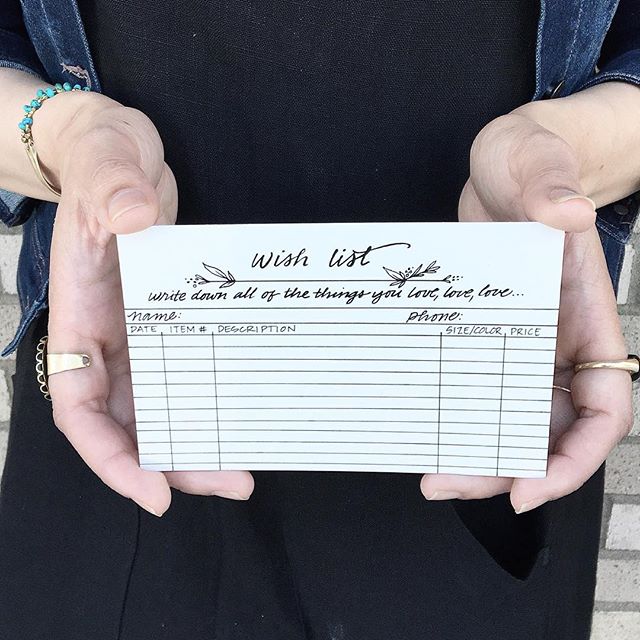 wish list
write down all of the things you love, love, love...
name: phone:
DATE ITEM # DESCRIPTION SIZE/COLOR PRICE